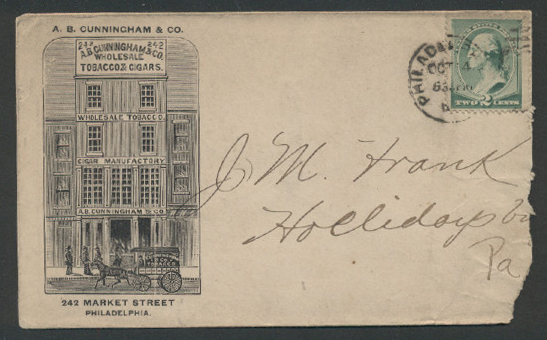 A. B. CUNNINGHAM & CO.
242 242
A.B. CUNNINGHAM & CO.
WHOLESALE
TOBACCO & CIGARS.
WHOLESALE TOBACCO.
CIGAR MANUFACTORY
A.B. CUNNINGHAM & CO.
TOBACCO
242 MARKET STREET
PHILADELPHIA.
PHILAD
OCT 4
TWO 2 CENTS
J M. Frank
Hollidaysbu
Pa